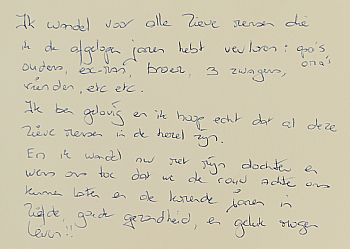 Ik wandel voor alle lieve mensen die
ik de afgelopen jaren hebt verloren: opa's
oma's
ouders, ex-man, broer, 3 zwagers,
vrienden, etc etc.
Ik ben gelovig en ik hoop echt dat al deze
lieve mensen in de hemel zijn.
En ik wandel nu met mijn dochter en
wens ons toe dat we de rouw achter ons
kunnen laten en de komende jaren in
liefde, goede gezondheid, en geluk mogen
leven!!